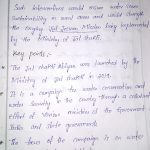 Such interventions would ensure water
Sustainability in rural areas and would strength
the ongoing Jal Jeevan Mission being implemented
by the Ministry of Jal shakti.
Key points:-
The Jal shakti Abhiyan was launched by the
Ministry of Jal shakti in 2019.
It is a campaign for water conservation and
water security in the country through a
effort of Various ministries of the Government
India and state governments.
The focus of the campaign is on water